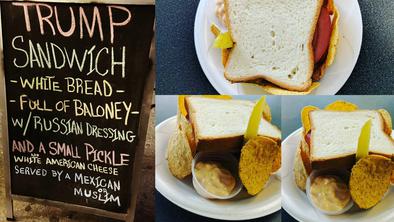 TRUMP
SANDWICH
-WHITE BREAD-
-FULL OF BALONEY-
W/RUSSIAN DRESSING
AND A SMALL PICKLE
WHITE AMERICAN CHEESE
SERVED BY A MEXICAN
OR
MUSLIM